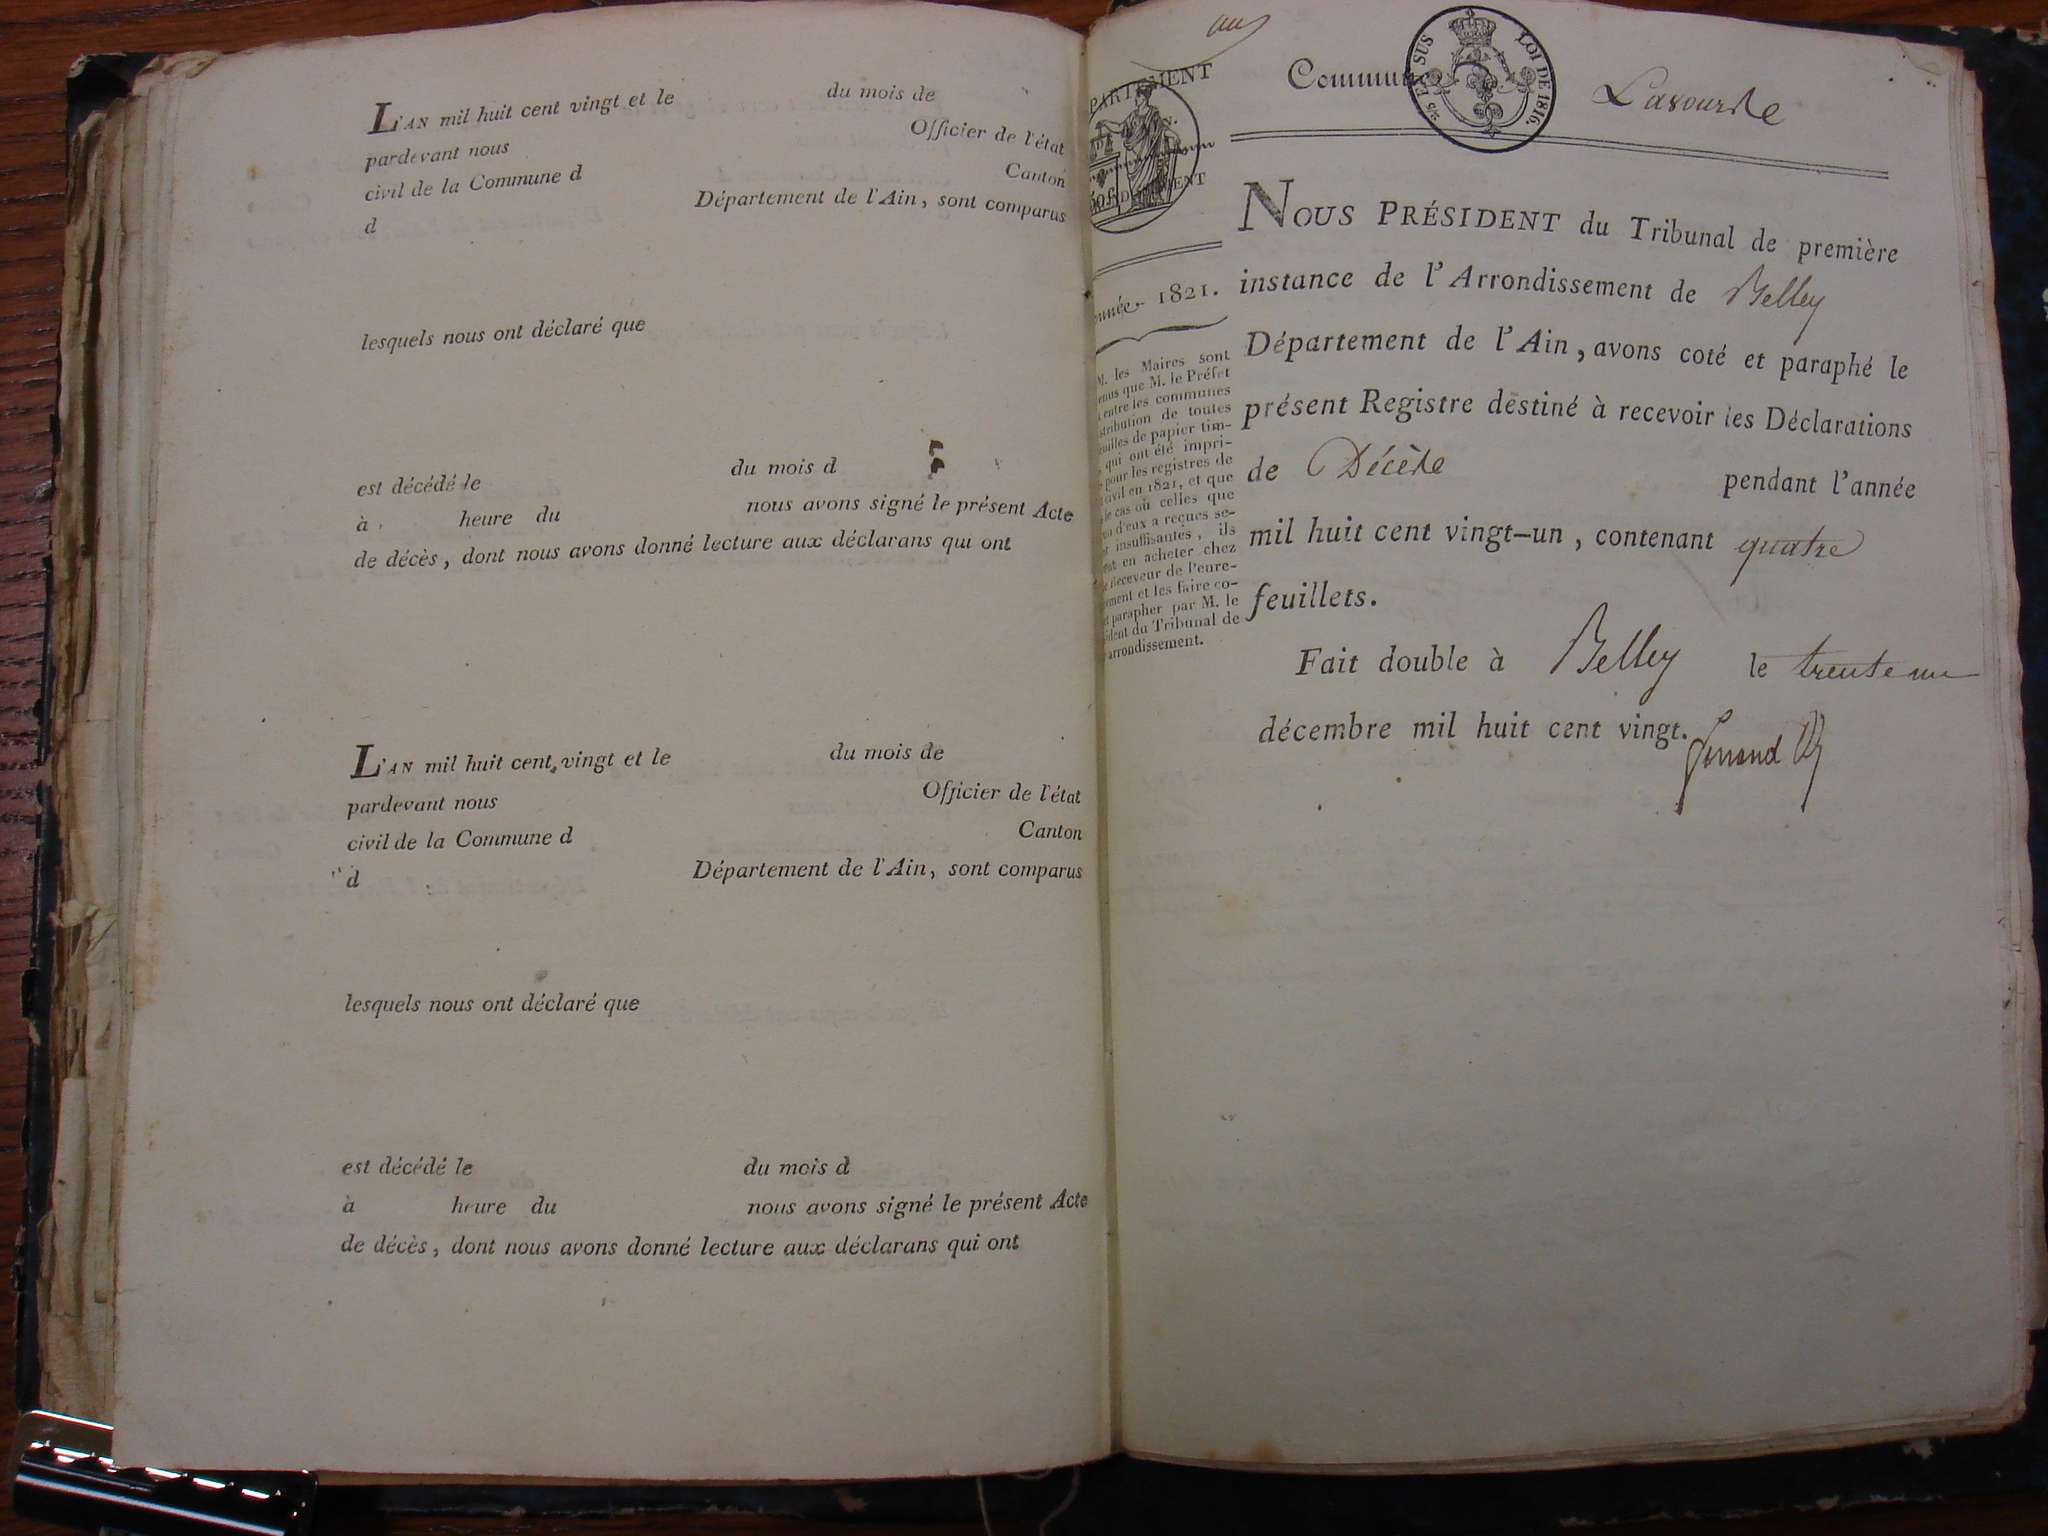 L'AN mil huit cent vingt et le du mois de
pardevant nous Officier de l'état
civil de la Commune d Canton
d Département de l'Ain, sont comparus
lesquels nous ont déclaré que
est décédé le du mois d
à heure du nous avons signé le présent Acte
de décès, dont nous avons donné lecture aux déclarans qui ont
L'AN mil huit cent vingt et le du mois de
pardevant nous Officier de l'état
civil de la Commune d Canton
d Département de l'Ain, sont comparus
lesquels nous ont déclaré que
est décédé le du mois d
à heure du nous avons signé le présent Acte
de décès, dont nous avons donné lecture aux déclarans qui ont
PARTEMENT
Commun
EN SUS LOI DE 1816.
nnée 1821.
M. les Maires sont
enus que M. le Préfet
entre les communes
stribution de toutes
euilles de papier tim-
qui ont été impri-
pour les registres de
civil en 1821, et que
le cas où celles que
un d'eux a reçues se-
insuffisantes, ils
ont en acheter chez
e Receveur de l'enre-
ement et les faire co-
et parapher par M. le
sident du Tribunal de
arrondissement.
NOUS PRÉSIDENT du Tribunal de première
instance de l'Arrondissement de Belley
Département de l'Ain, avons coté et paraphé le
présent Registre destiné à recevoir les Déclarations
de Décède pendant l'année
mil huit cent vingt-un, contenant quatre
feuillets.
Fait double à Belley le trente un
décembre mil huit cent vingt.